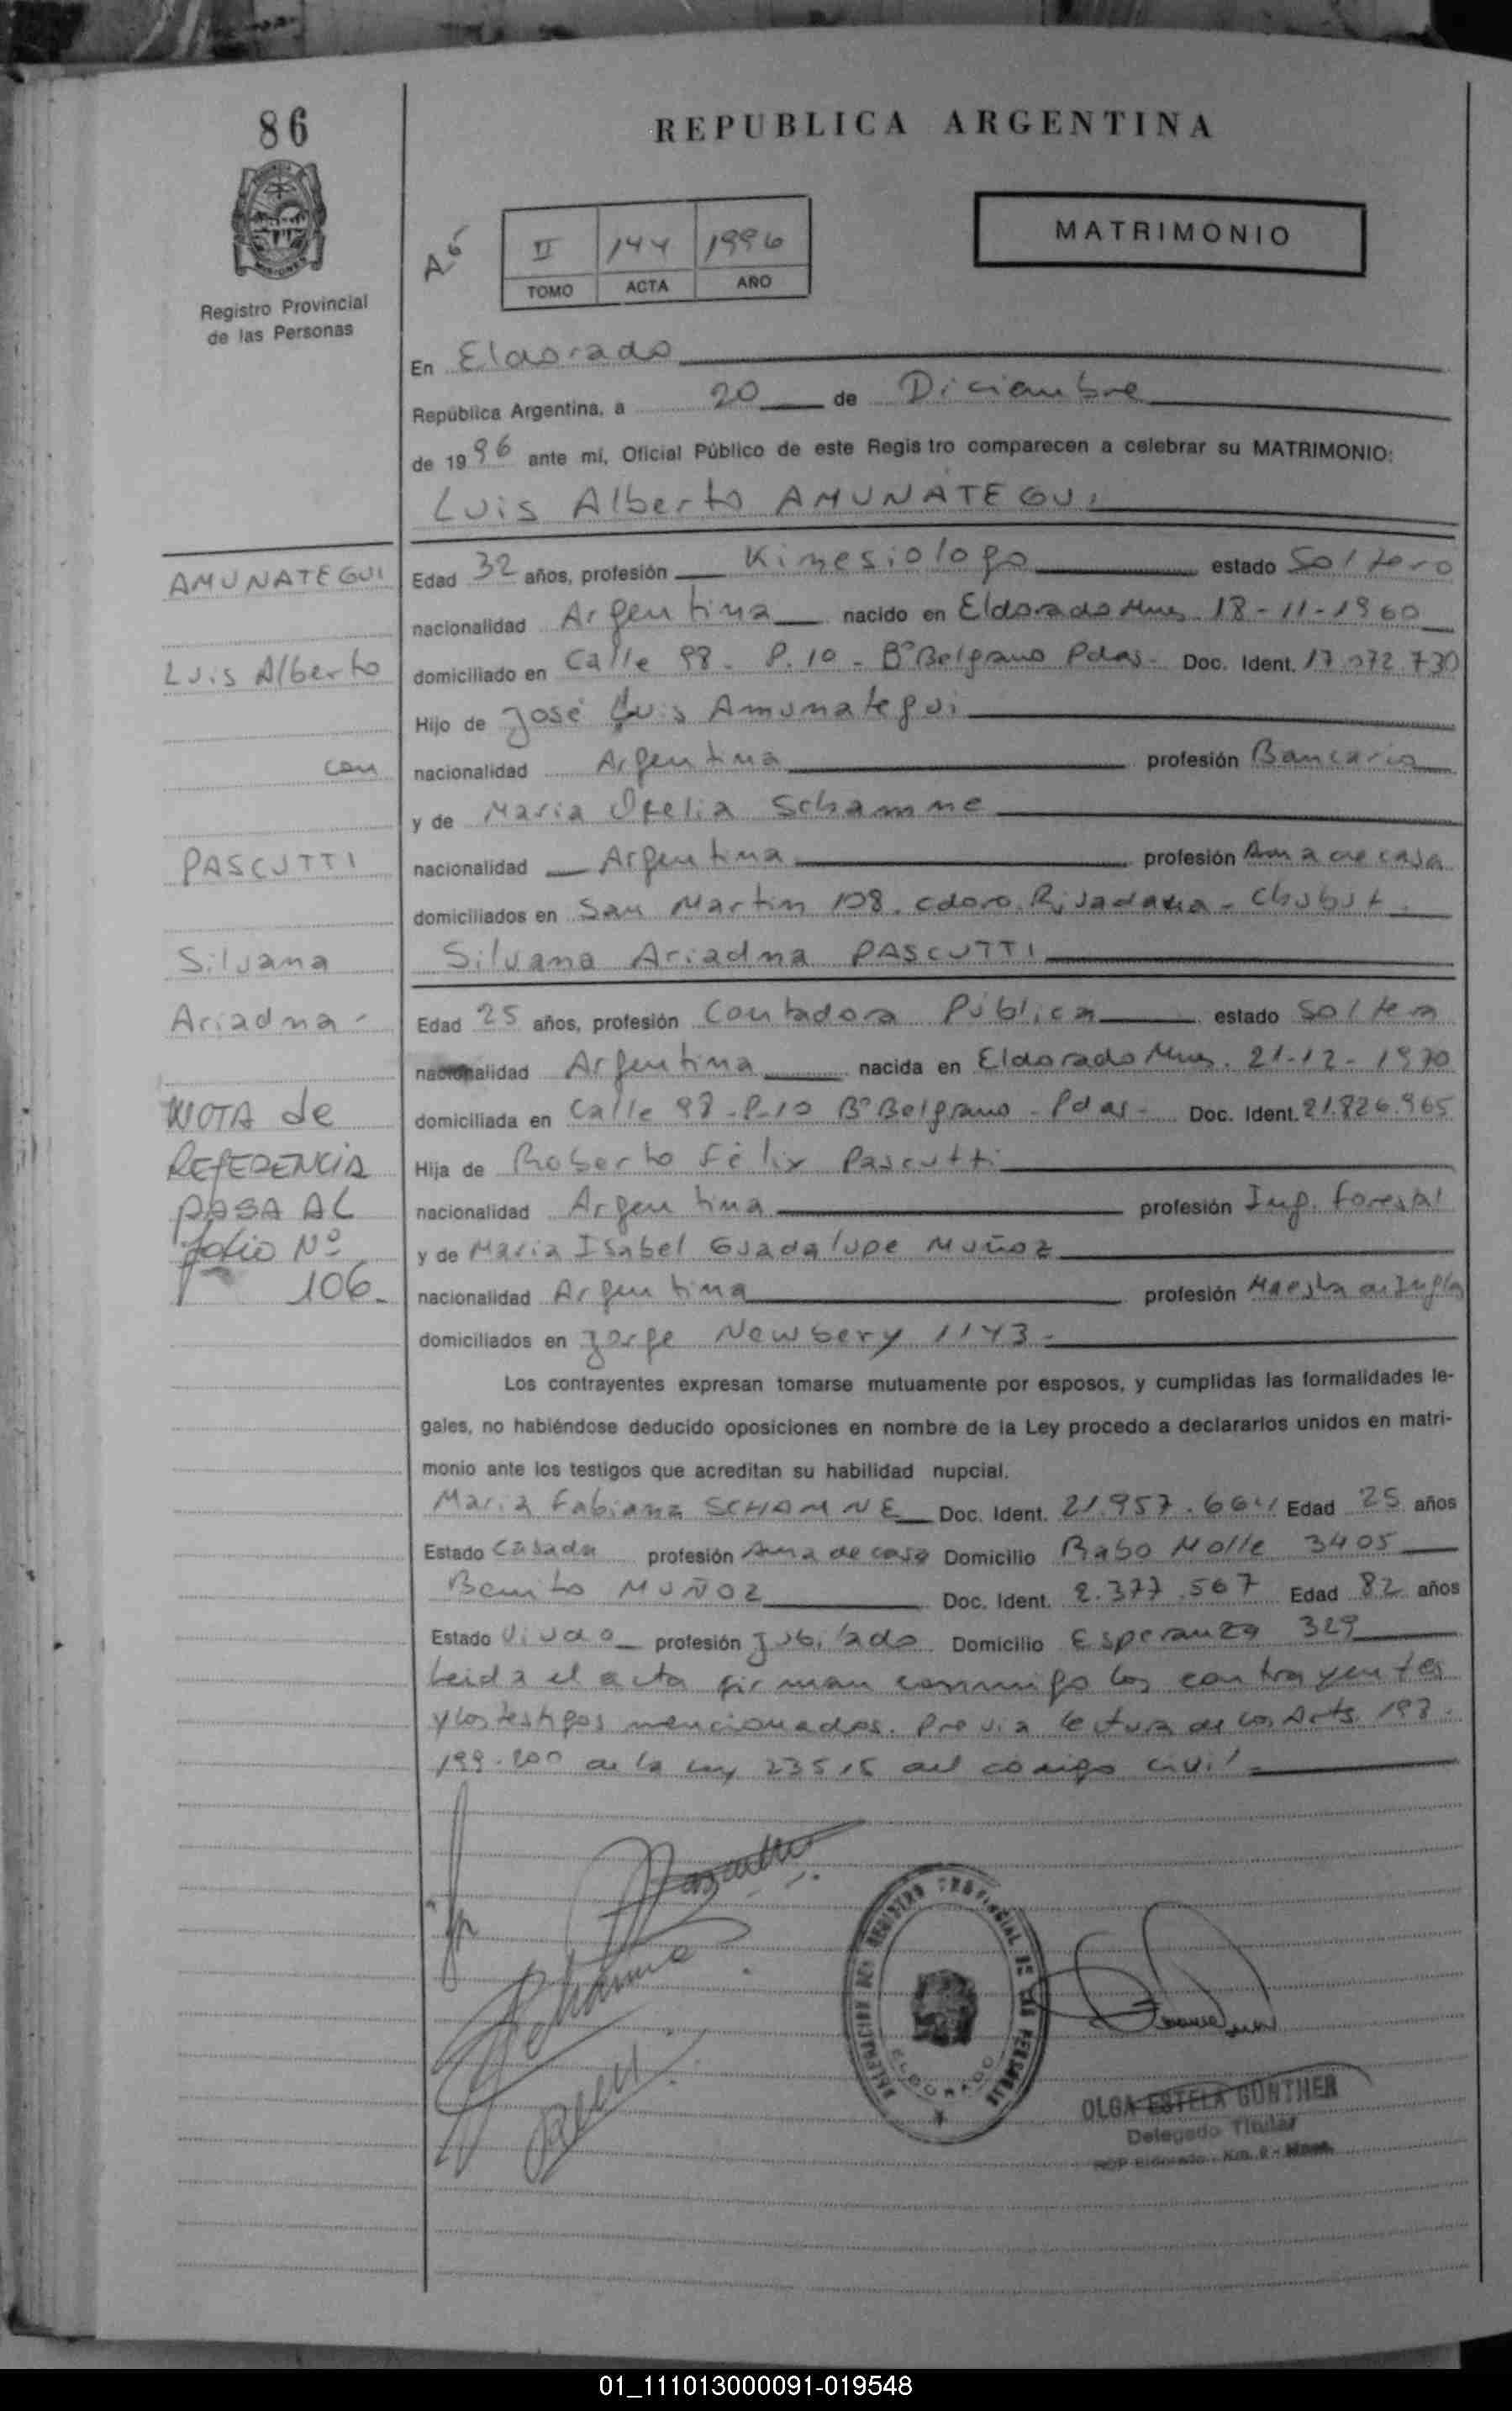 86
REPUBLICA ARGENTINA
MATRIMONIO
II 144 1996
TOMO ACTA AÑO
Registro Provincial
de las Personas
En Eldorado
República Argentina, a 20 de Diciembre
de 1996 ante mí, Oficial Público de este Registro comparecen a celebrar su MATRIMONIO:
Luis Alberto AMUNATEGUI
AMUNATEGUI
Luis Alberto
con
PASCUTTI
Silvana
Ariadna -
NOTA de
REFERENCIA
PASA AL
folio Nº
106.
Edad 32 años, profesión Kinesiologo estado Soltero
nacionalidad Argentina nacido en Eldorado Mnes. 18-11-1960
domiciliado en Calle 98 - P.10 - Bº Belgrano Pdas - Doc. Ident. 17.072.730
Hijo de José Luis Amunategui
nacionalidad Argentina profesión Bancario
y de Maria Ofelia Schamne
nacionalidad Argentina profesión Ama de casa
domiciliados en San Martin 108. Cdoro. Rivadavia - Chubut.
Silvana Ariadna PASCUTTI
Edad 25 años, profesión Contadora Pública estado Soltera
nacionalidad Argentina nacida en Eldorado Mnes. 21-12-1970
domiciliada en Calle 98 - P-10 Bº Belgrano - Pdas - Doc. Ident. 21.826.965
Hija de Roberto Félix Pascutti
nacionalidad Argentina profesión Ing. Forestal
y de Maria Isabel Guadalupe Muñoz
nacionalidad Argentina profesión Maestra
domiciliados en Jorge Newbery 1143 -
Los contrayentes expresan tomarse mutuamente por esposos, y cumplidas las formalidades le-
gales, no habiéndose deducido oposiciones en nombre de la Ley procedo a declararlos unidos en matri-
monio ante los testigos que acreditan su habilidad nupcial.
Maria Fabiana SCHAMNE Doc. Ident. 21.957.664 Edad 25 años
Estado Casada profesión Ama de casa Domicilio Rabo Molle 3405
Benito MUÑOZ Doc. Ident. 2.377.567 Edad 82 años
Estado Viudo profesión Jubilado Domicilio Esperanza 329
Leida el acta firman conmigo los contrayentes
y los testigos mencionados. Previa lectura de los Arts. 198 -
199 - 200 de la Ley 23515 del código civil -
DELEGACION DEL REGISTRO PROVINCIAL DE LAS PERSONAS
ELDORADO
OLGA ESTELA GUNTHER
Delegado Titular
RCP Eldorado - Km. 9 - Mnes.
01_111013000091-019548